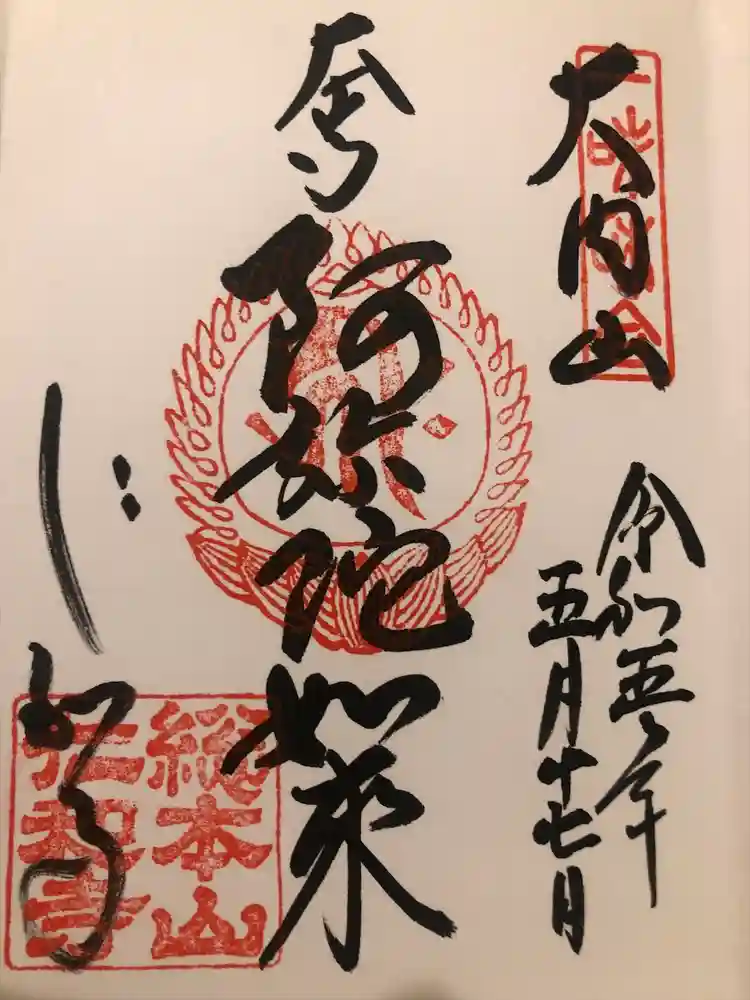 大内山
令和五年
五月十七日
阿弥陀如来
仁和寺
総本山
仁和寺